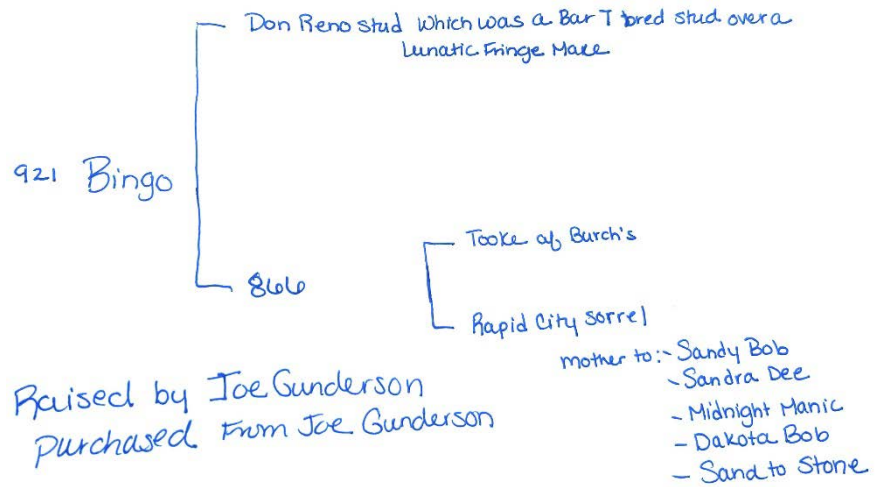 Don Reno stud which was a Bar T bred stud over a
Lunatic Fringe Mare
921 Bingo
Tooke of Burch's
866
Rapid City sorrel
mother to:- Sandy Bob
- Sandra Dee
- Midnight Manic
- Dakota Bob
- Sand to Stone
Raised by Joe Gunderson
purchased From Joe Gunderson